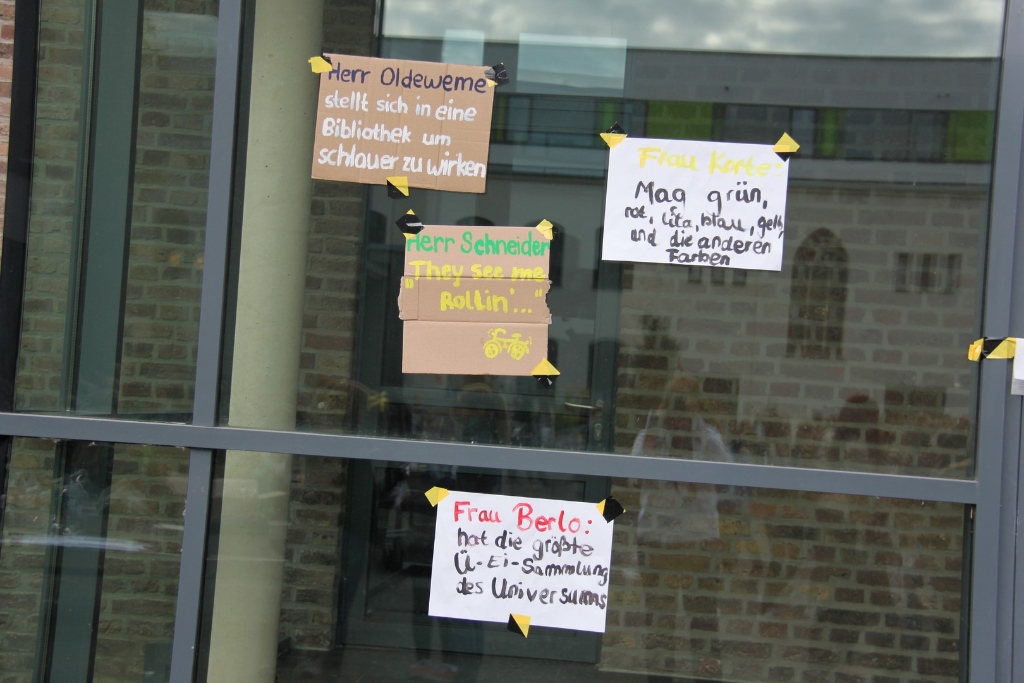 Herr Oldeweme
stellt sich in eine
Bibliothek um
schlauer zu wirken
Frau Korte:
Mag grün,
rot, lila, blau, gelb,
und die anderen
Farben
Herr Schneider
"They see me
Rollin'..."
Frau Berlo:
hat die größte
Ü-Ei-Sammlung
des Universums